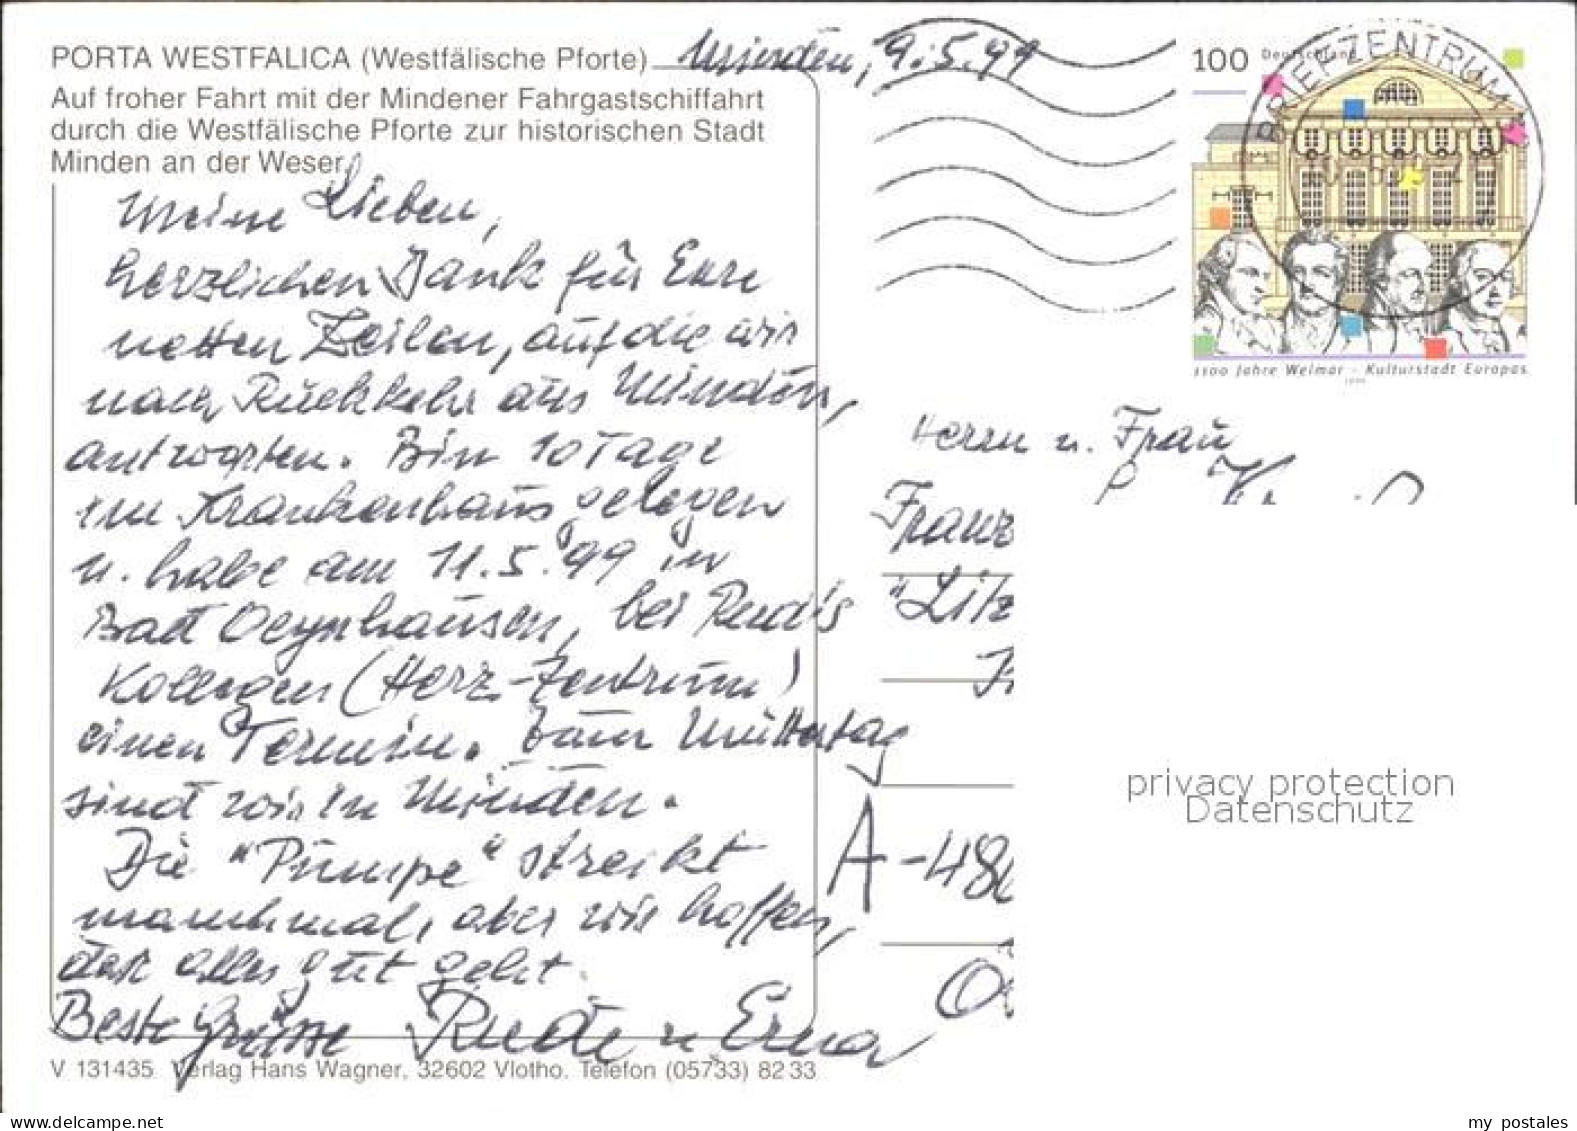 PORTA WESTFALICA (Westfälische Pforte)
Auf froher Fahrt mit der Mindener Fahrgastschiffahrt
durch die Westfälische Pforte zur historischen Stadt
Minden an der Weser
Minden, 9.5.99
Meine Lieben,
herzlichen Dank für Eure
netten Zeilen, auf die wir
nach Rückkehr aus Minden,
antworten. Bin 10 Tage
im Krankenhaus gelegen
u. habe am 11.5.99 in
Bad Oeynhausen, bei Rudis
Kollegen (Herz-Zentrum)
einen Termin. Zum Muttertag
sind wir in Minden.
Die "Pumpe" streikt
manchmal, aber wir hoffen,
daß alles gut geht.
Beste Grüsse Rudi u. Erna
V 131435 Verlag Hans Wagner, 32602 Vlotho. Telefon (05733) 8233
100 Deutschland
BRIEFZENTRUM
1100 Jahre Weimar - Kulturstadt Europas
1999
Herrn u. Frau
Franz
"Litz
A-48
Ö
privacy protection
Datenschutz
www.delcampe.net
my_postales